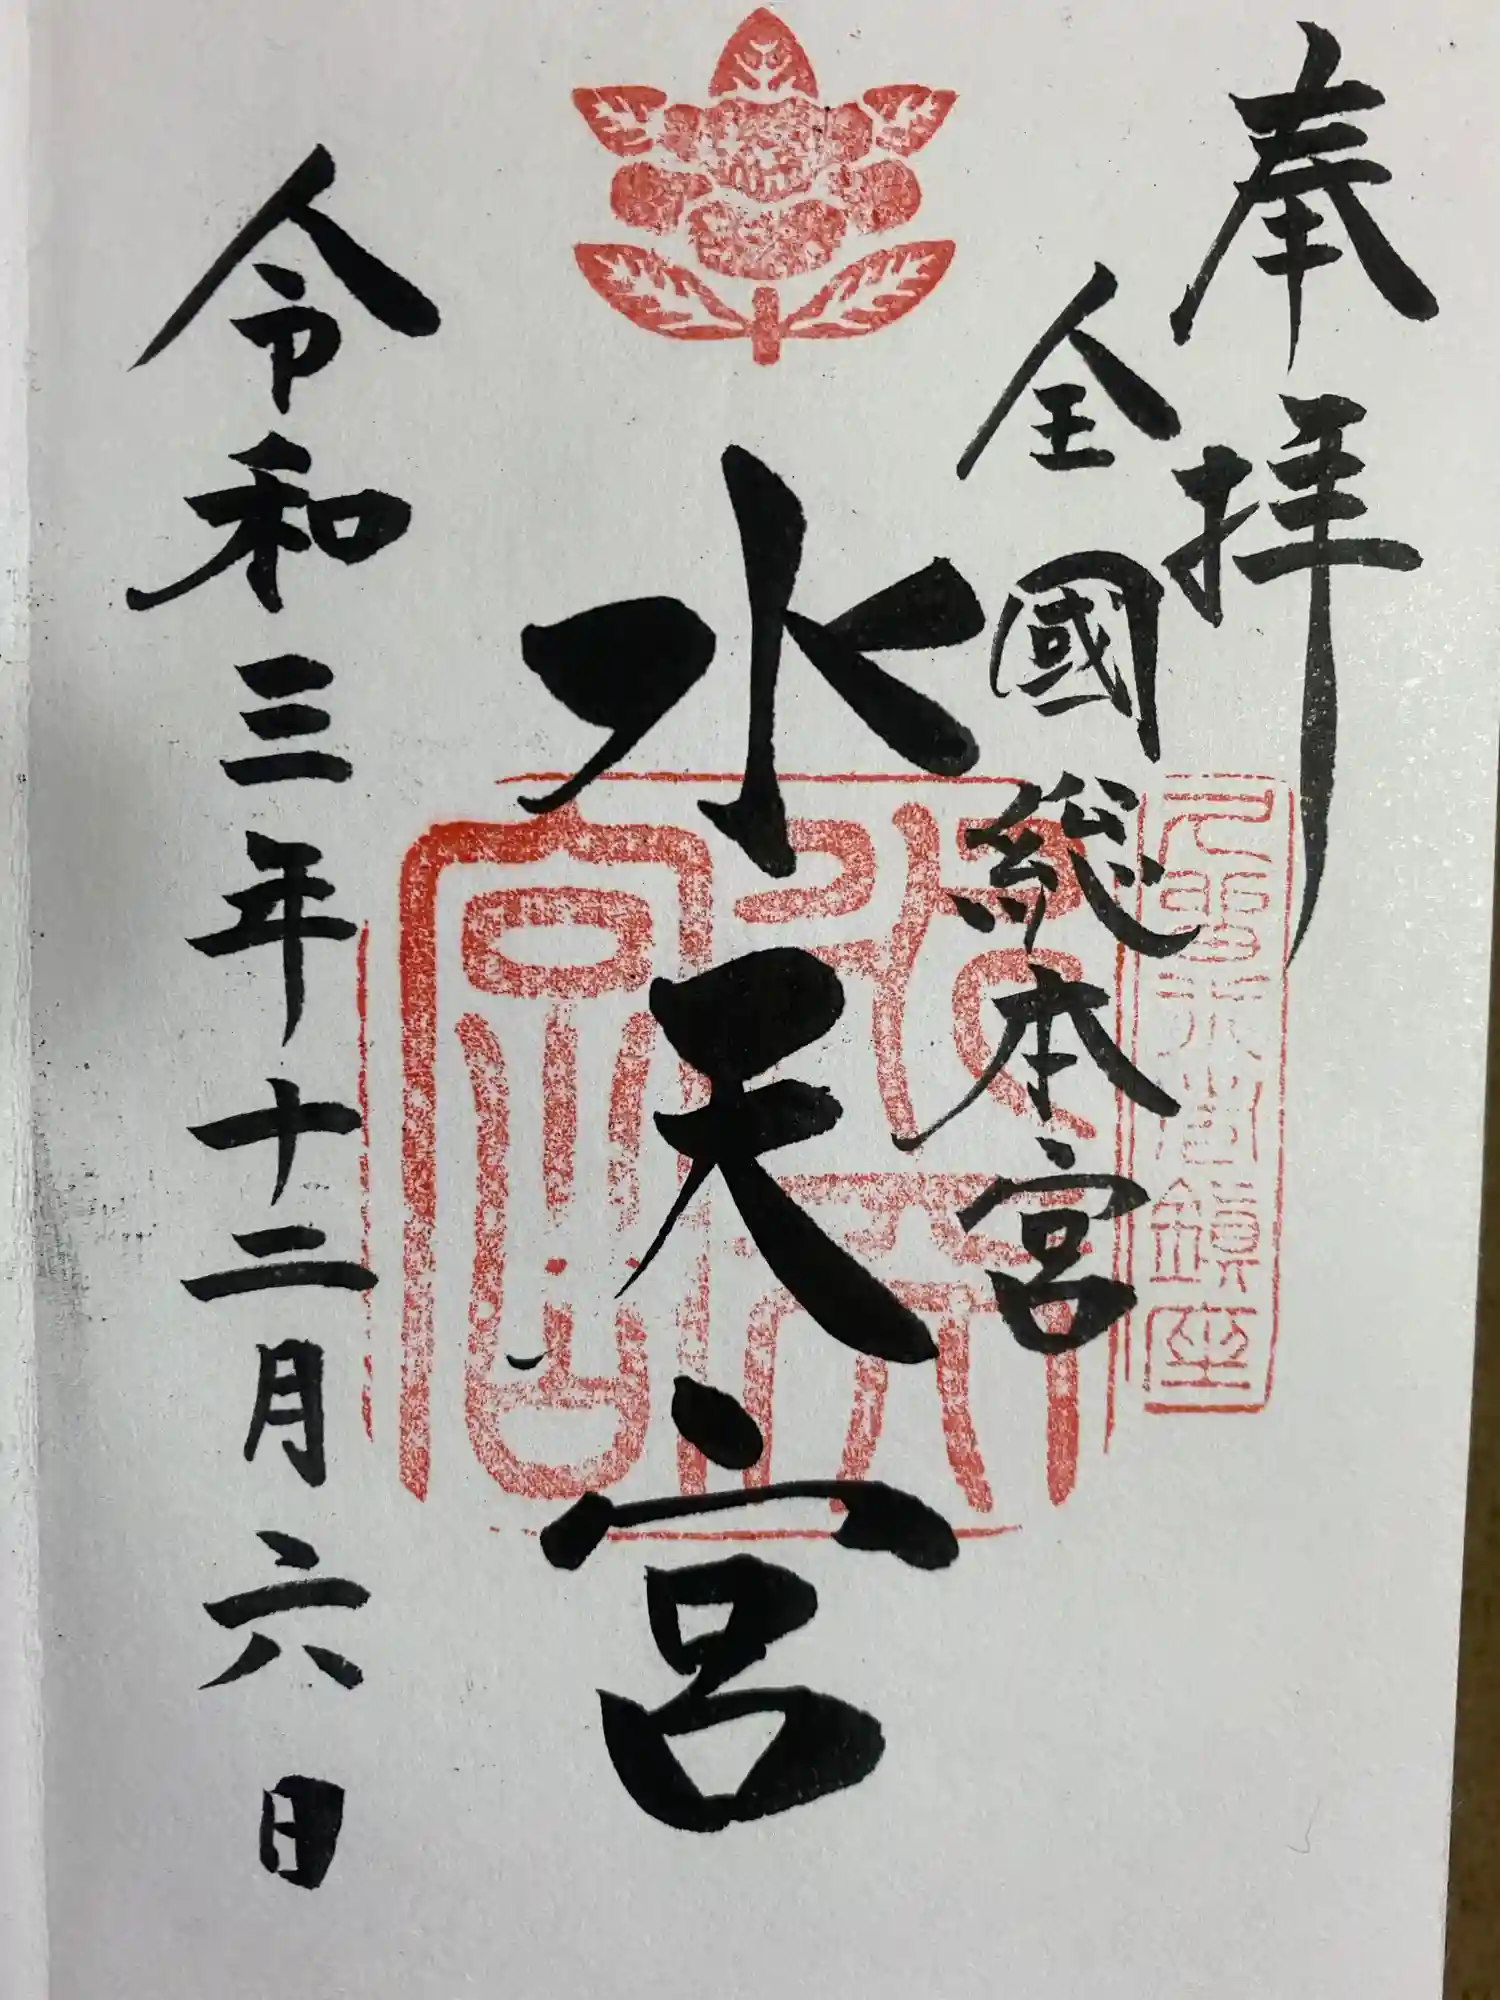 奉拝
全國総本宮
水天宮
令和三年十二月六日